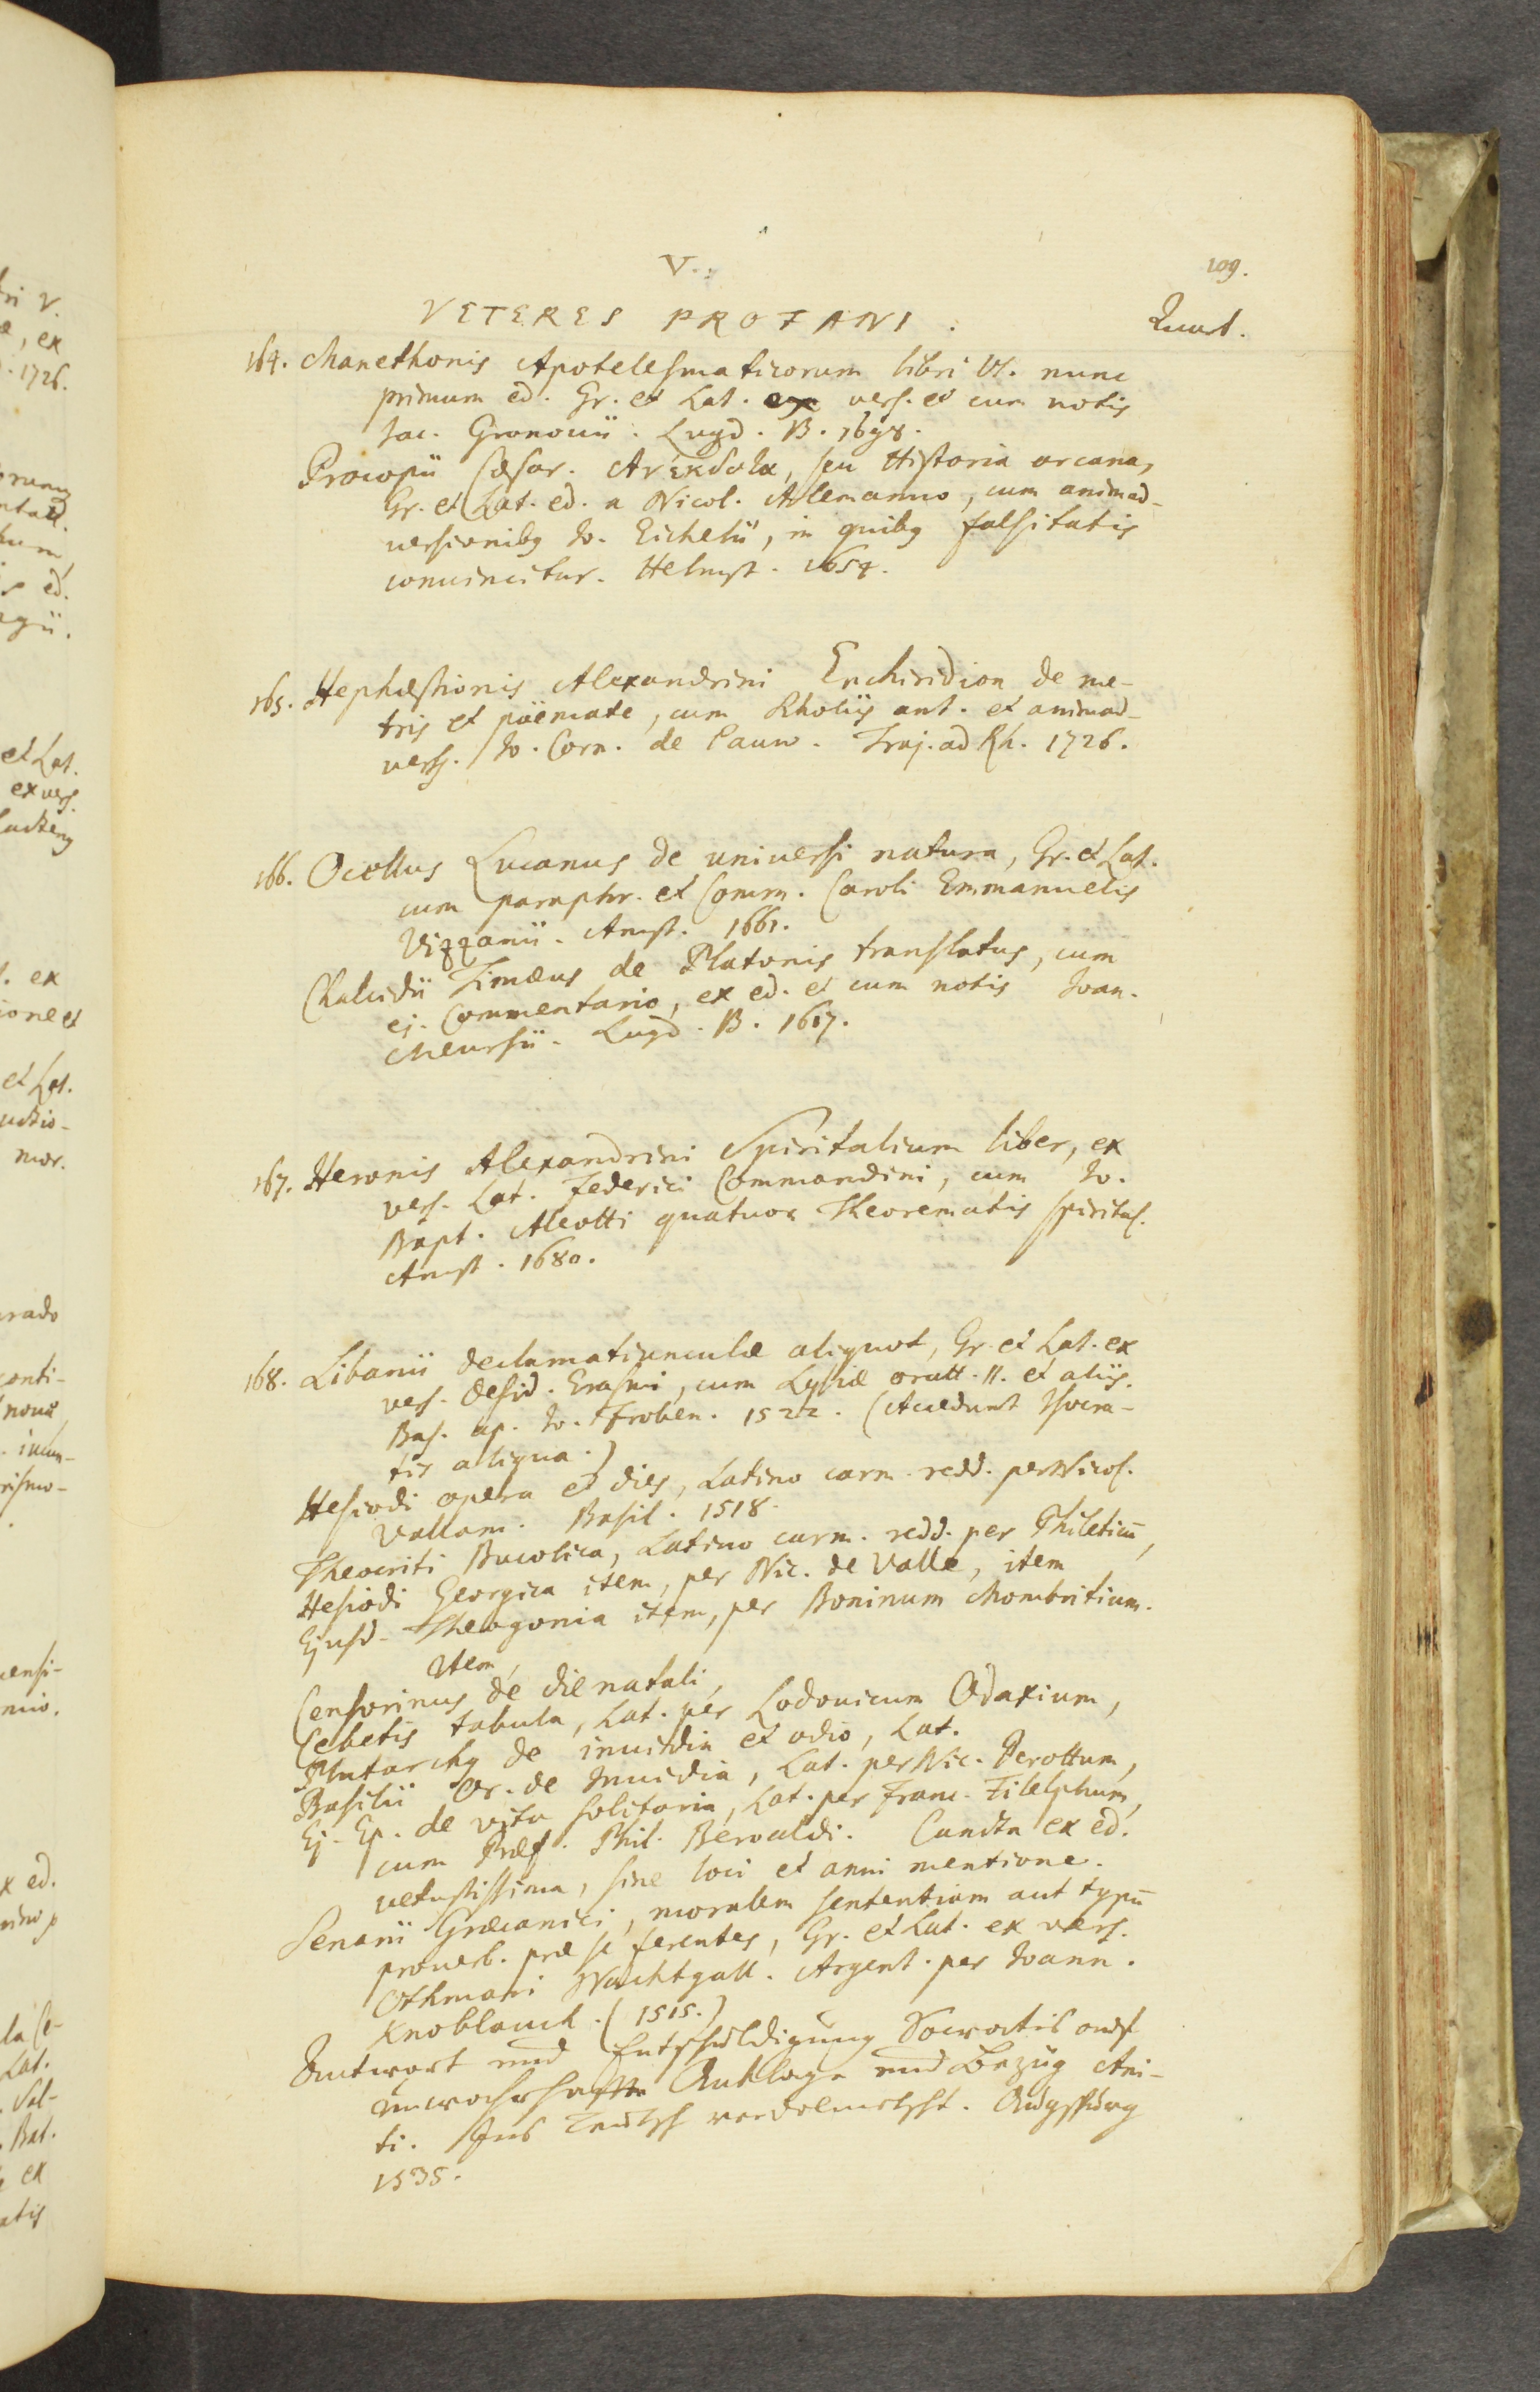 V.
109.
VETERES PROFANI.
Quart.
164. Manethonis Apotelesmaticorum libri VI. nunc
primum ed. Gr. et Lat. ex vers. et cum notis
Jac. Gronouii. Lugd. B. 1698.
Procopii Cæsar. Ἀνέκδοτα, seu Historia arcana,
Gr. et Lat. ed. a Nicol. Alemanno, cum animad-
uersionibg Io. Eichelii, in quibg falsitatis
conuincitur. Helmst. 1654.
165. Hephæstionis Alexandrini Enchiridion de me-
tris et poëmate, cum Scholiis ant. et animad-
verss. Io. Corn. de Pauw. Traj. ad Rh. 1726.
166. Ocellus Lucanus de universi natura, Gr. et Lat.
cum paraphr. et Comm. Caroli Emmanuelis
Vizzanii. Amst. 1661.
Chalcidii Timæus de Platonis translatus, cum
ej. Commentario, ex ed. et cum notis Ioan.
Meursii. Lugd. B. 1617.
167. Heronis Alexandrini Spiritalium liber, ex
vers. Lat. Federici Commandini, cum Io.
Bapt. Aleotti quatuor Theorematis spirital.
Amst. 1680.
168. Libanii declamatiunculæ aliquot, Gr. et Lat. ex
vers. Desid. Erasmi, cum Lysiæ oratt. II. et aliis.
Bas. ap. Io. Froben. 1522. (Accedunt Isocra-
tis aliqua.)
Hesiodi opera et dies, Latino carm. redd. per Nicol.
Vallam. Basil. 1518.
Theocriti Bucolica, Latino carm. redd. per Phileticū,
Hesiodi Georgica item, per Nic. de Valle, item
Ejusd. Theogonia item, per Boninum Mombritium.
Item,
Censorinus de die natali,
Cebetis tabula, Lat. per Lodouicum Odaxium,
Plutarchg de inuidia et odio, Lat.
Basilii Or. de Inuidia, Lat. per Nic. Perottum,
Ej. Ep. de vita solitaria, Lat. per Franc. Filelphum,
cum Præf. Phil. Beroaldi. Cuncta ex ed.
vetustissima, sine loci et anni mentione.
Senarii Græcanici, moralem sententiam aut typū
prouerb. præ se ferentes, Gr. et Lat. ex vers.
Othmari Nachtgall. Argent. per Ioann.
Knoblauch. (1515.)
Antwort und Entschuldigung Socratis auf
unwarhafften Anklage und Bezüg Ani-
ti. Ins Teutsch verdolmetscht. Augspurg
1535.